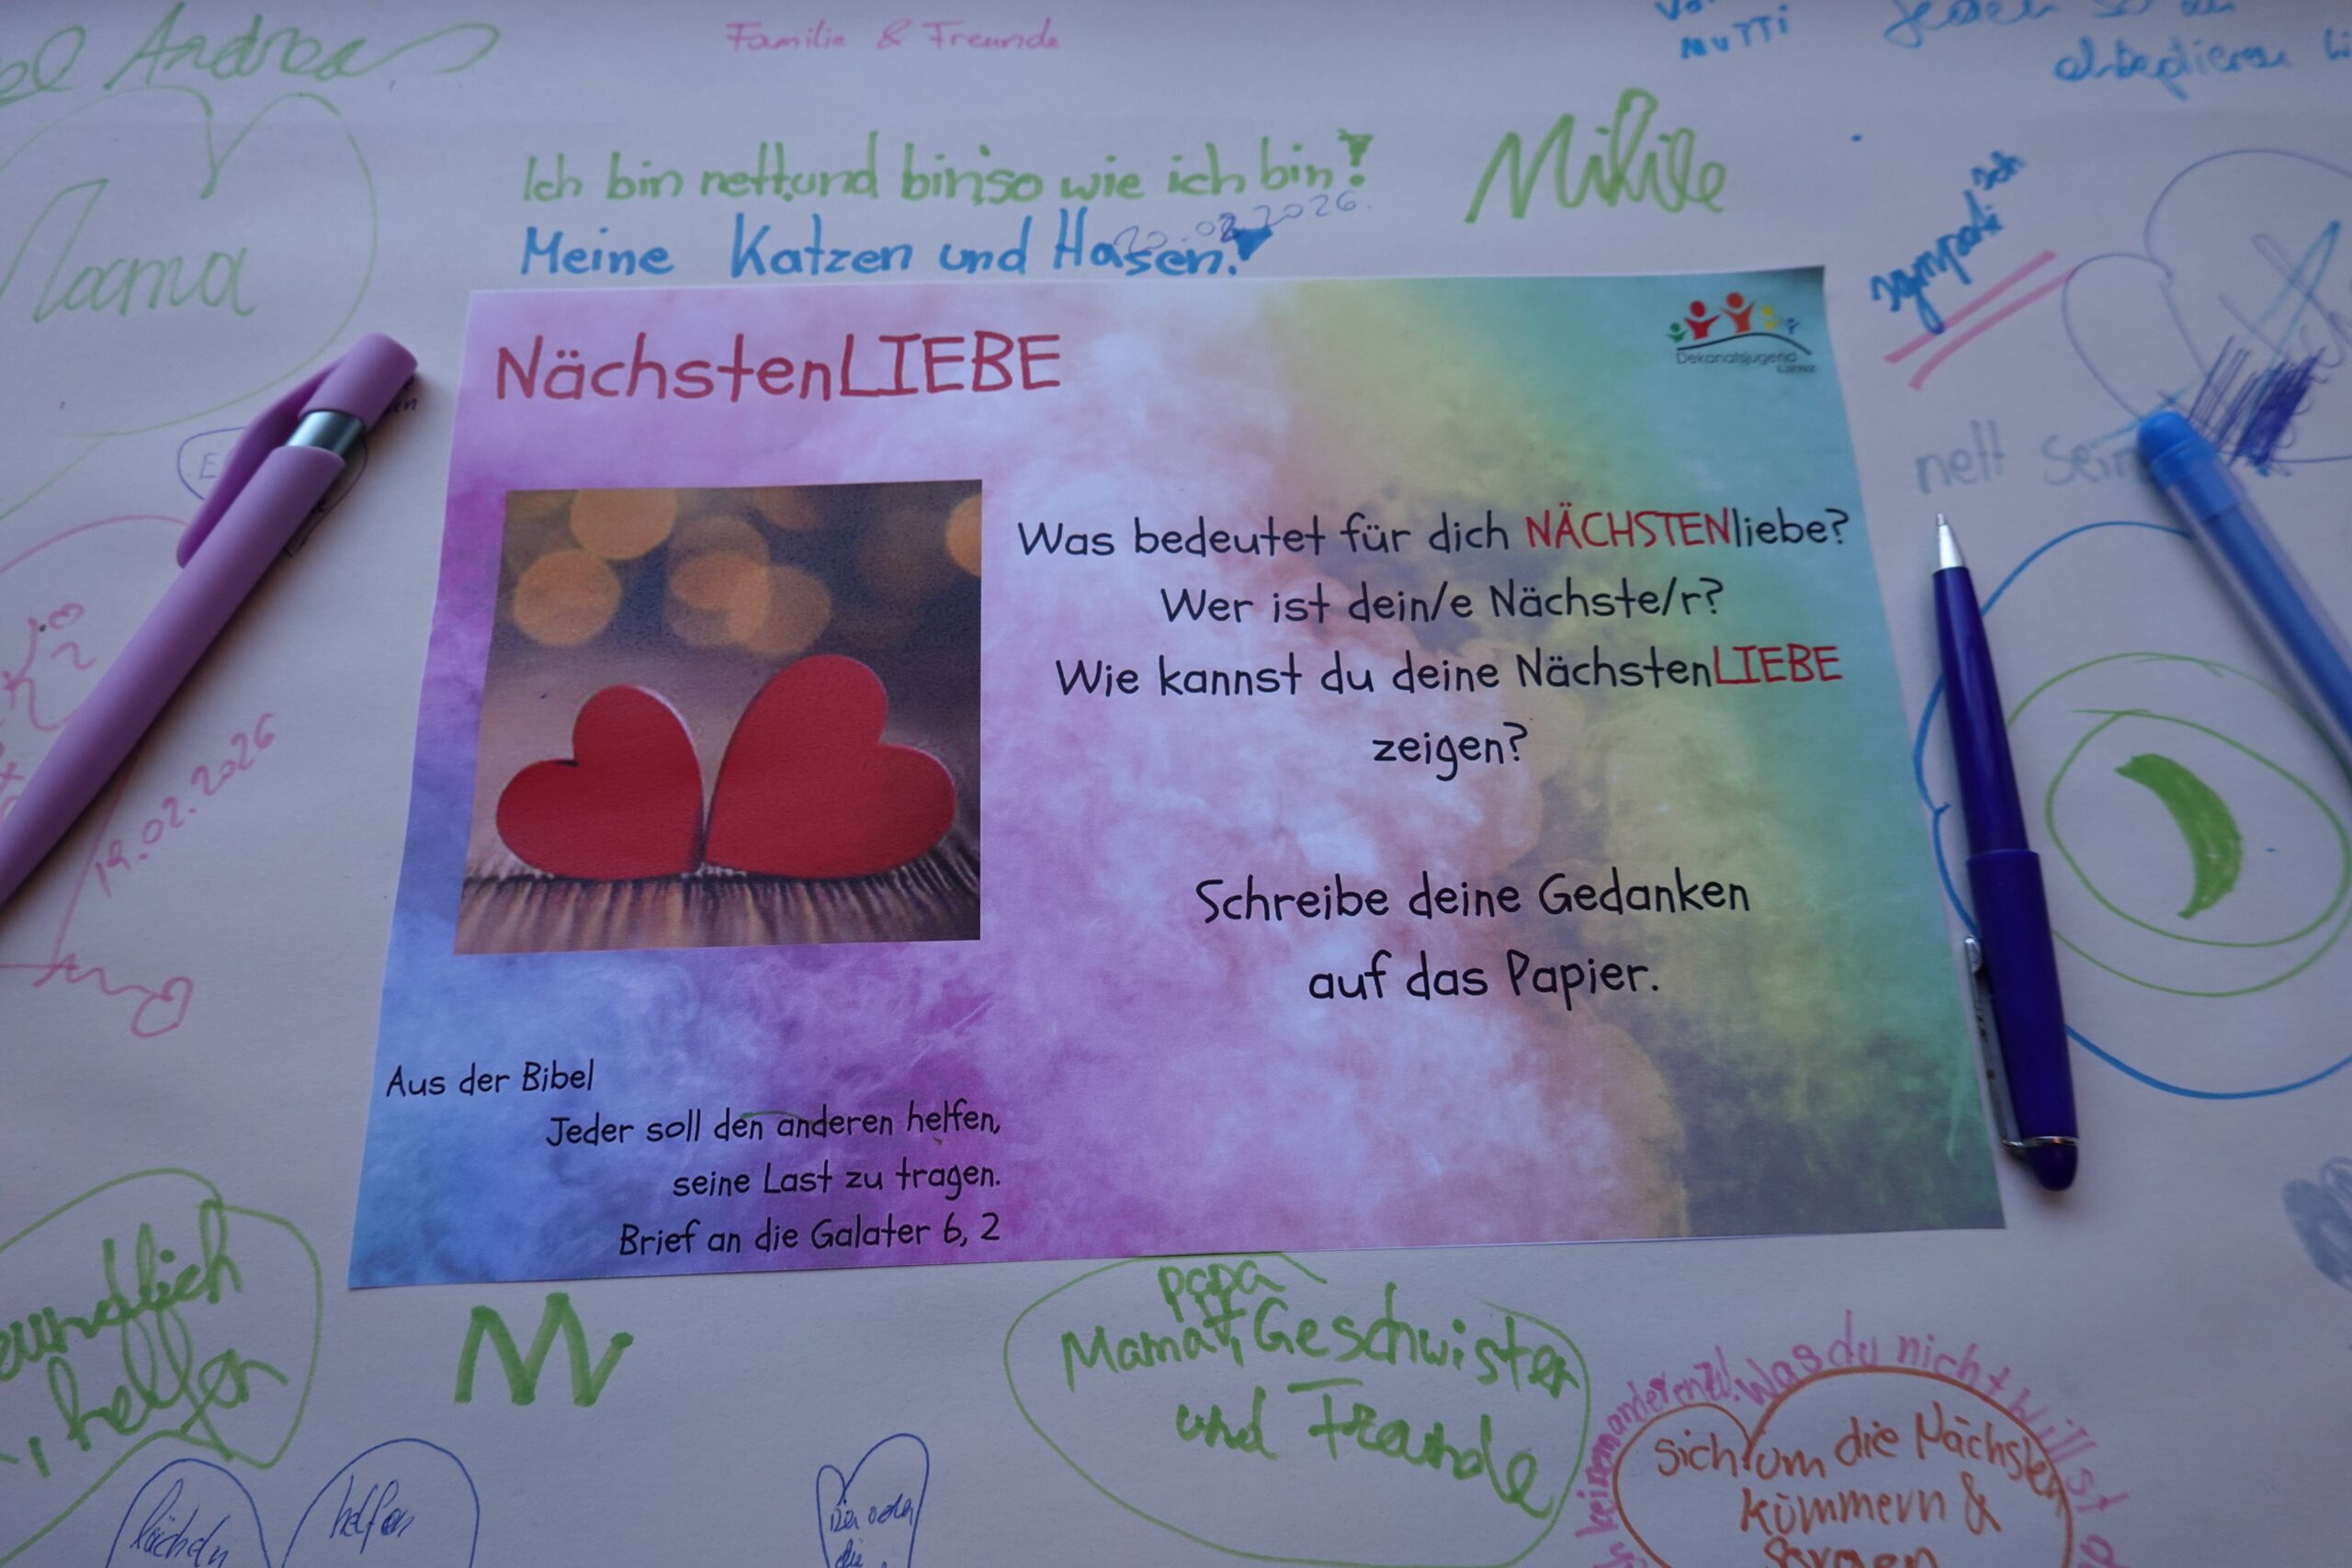 Andrea
Familie & Freunde
MUTTI
Mama
Ich bin nett und bin so wie ich bin!
Meine Katzen und Hasen!
20.02.2026.
sympatisch
nett sein
NächstenLIEBE
Dekanatsjugend
Lienz
Was bedeutet für dich NÄCHSTENliebe?
Wer ist dein/e Nächste/r?
Wie kannst du deine NächstenLIEBE
zeigen?
Schreibe deine Gedanken
auf das Papier.
19.02.2026
Aus der Bibel
Jeder soll den anderen helfen,
seine Last zu tragen.
Brief an die Galater 6, 2
helfen
M
papa
Mama, Geschwister
und Freunde
Was du nicht willst
keinem anderen zu!
sich um die Nächsten
kümmern &
lächeln
helfen